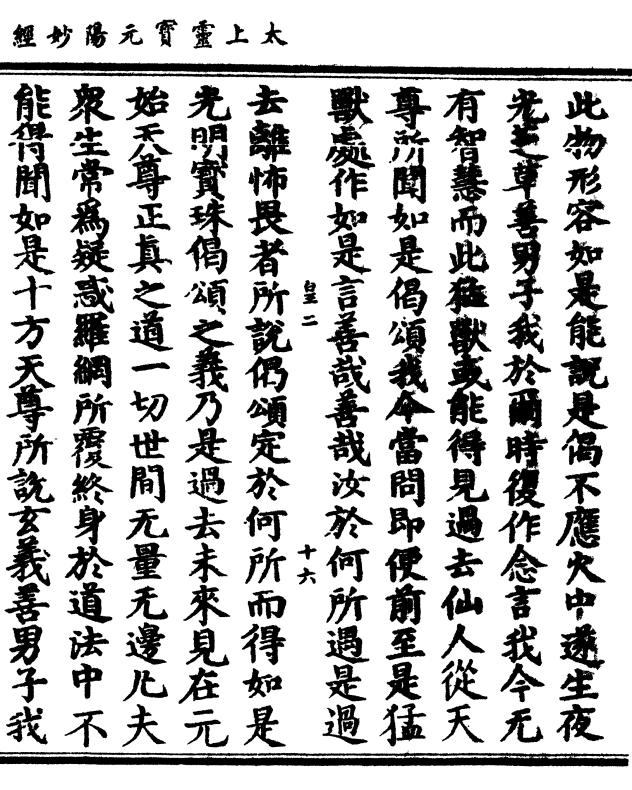 太上靈寳元陽妙經
此物形容如是能說是偈不應火中遂生夜
光芝草善男子我於爾時復作念言我今无
有智慧而此猛獸或能得見過去仙人從天
尊所聞如是偈頌我今當問即便前至是猛
獸處作如是言善哉善哉汝於何所遇是過
皇二 十六
去離怖畏者所說偈頌定於何所而得如是
光明寳珠偈頌之義乃是過去未來見在元
始天尊正真之道一切世間无量无邊凡夫
衆生常爲疑惑羅網所覆終身於道法中不
能得聞如是十方天尊所說玄義善男子我